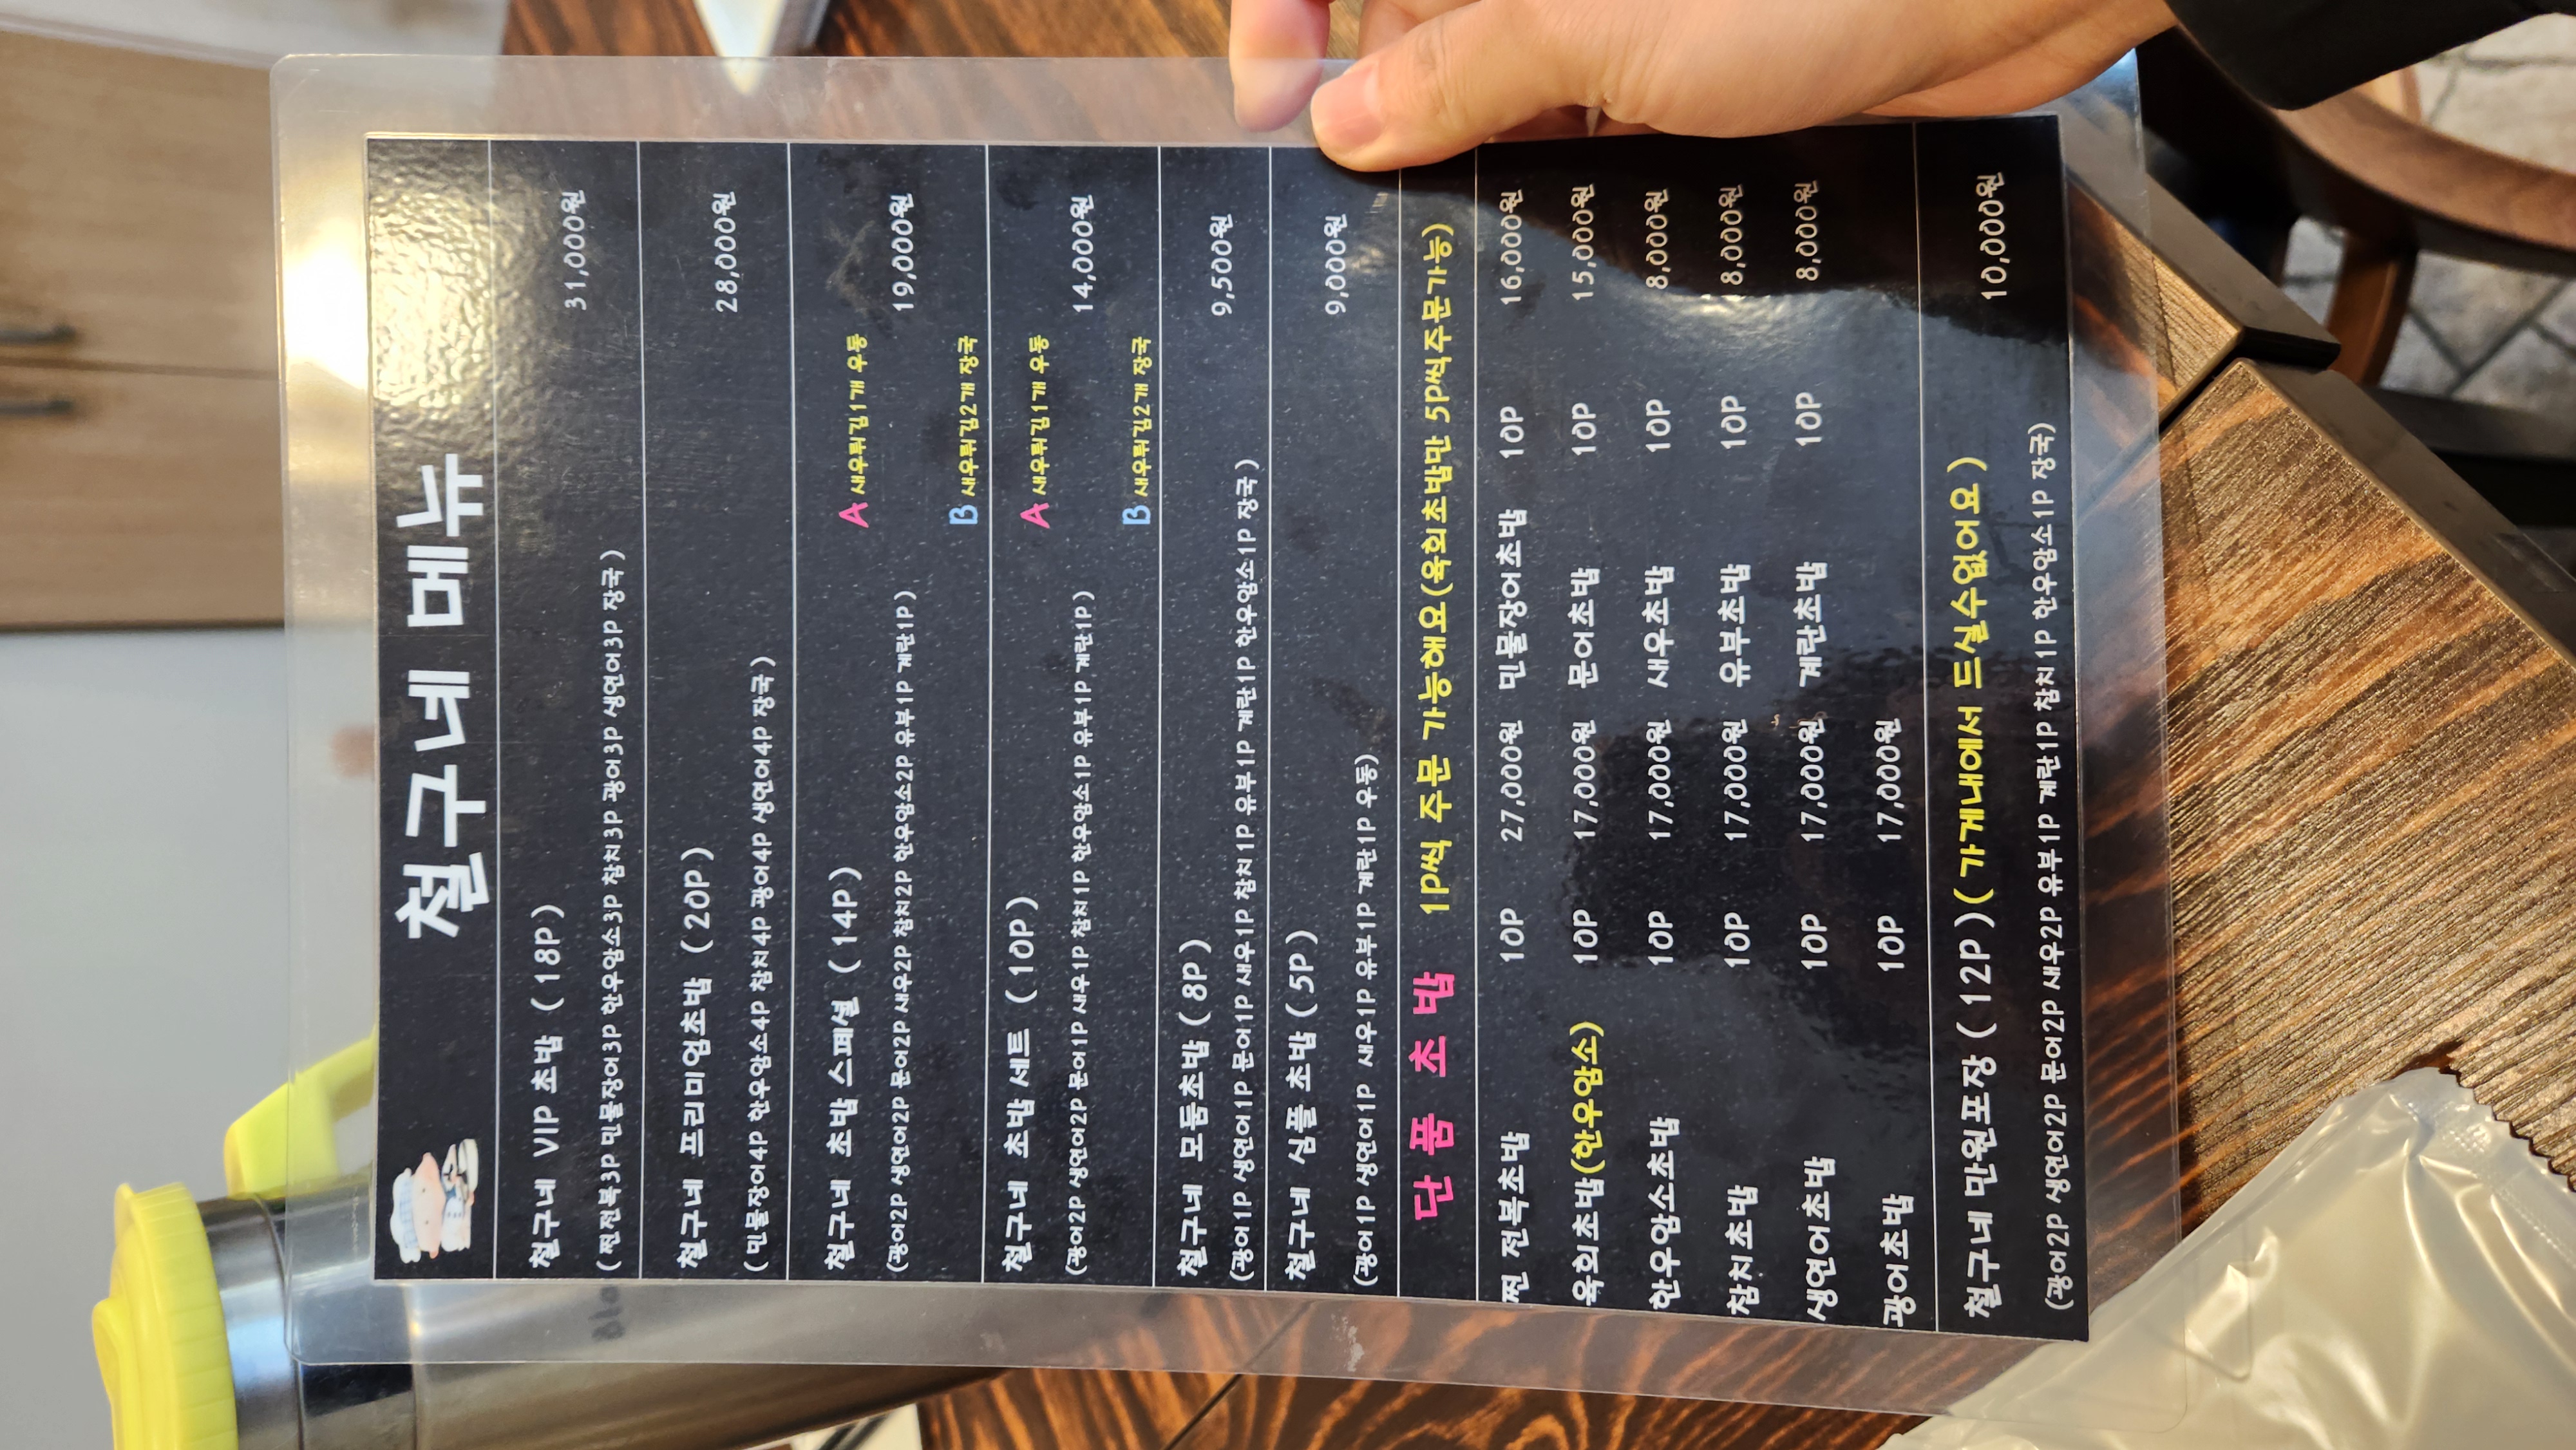 철구네 메뉴
철구네 VIP 초밥 ( 18P )
31,000원
( 찐전복3P 민물장어3P 한우암소3P 참치3P 광어3P 생연어3P 장국 )
철구네 프리미엄초밥 ( 20P )
28,000원
( 민물장어4P 한우암소4P 참치4P 광어4P 생연어4P 장국 )
철구네 초밥 스페셜 ( 14P )
A 새우튀김1개 우동
(광어2P 생연어2P 문어2P 새우2P 참치2P 한우암소2P 유부1P 계란1P )
19,000원
B 새우튀김2개 장국
철구네 초밥 세트 ( 10P )
A 새우튀김1개 우동
(광어2P 생연어2P 문어1P 새우1P 참치1P 한우암소1P 유부1P 계란1P )
14,000원
B 새우튀김2개 장국
철구네 모둠초밥 ( 8P )
9,500원
(광어1P 생연어1P 문어1P 새우1P 참치1P 유부1P 계란1P 한우암소1P 장국 )
철구네 심플 초밥 ( 5P )
9,000원
(광어1P 생연어1P 새우1P 유부1P 계란1P 우동)
단 품 초 밥 1P씩 주문 가능해요(육회초밥만 5P씩주문가능)
찐 전복초밥 10P 27,000원 민물장어초밥 10P 16,000원
육회초밥(한우암소) 10P 17,000원 문어초밥 10P 15,000원
한우암소초밥 10P 17,000원 새우초밥 10P 8,000원
참치초밥 10P 17,000원 유부초밥 10P 8,000원
생연어초밥 10P 17,000원 계란초밥 10P 8,000원
광어초밥 10P 17,000원
철구네 만원포장 ( 12P ) ( 가게내에서 드실수없어요 )
10,000원
(광어2P 생연어2P 문어2P 새우2P 유부1P 계란1P 참치1P 한우암소1P 장국)